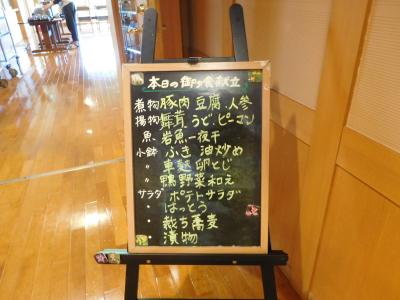 本日の御夕食献立
煮物 豚肉 豆腐、人参
揚物 舞茸 うど、ピーマン
魚 岩魚一夜干
小鉢 ふき 油炒め
〃 車麩 卵とじ
〃 鴨野菜和え
サラダ ポテトサラダ
・ はっとう
・ 裁ち蕎麦
・ 漬物